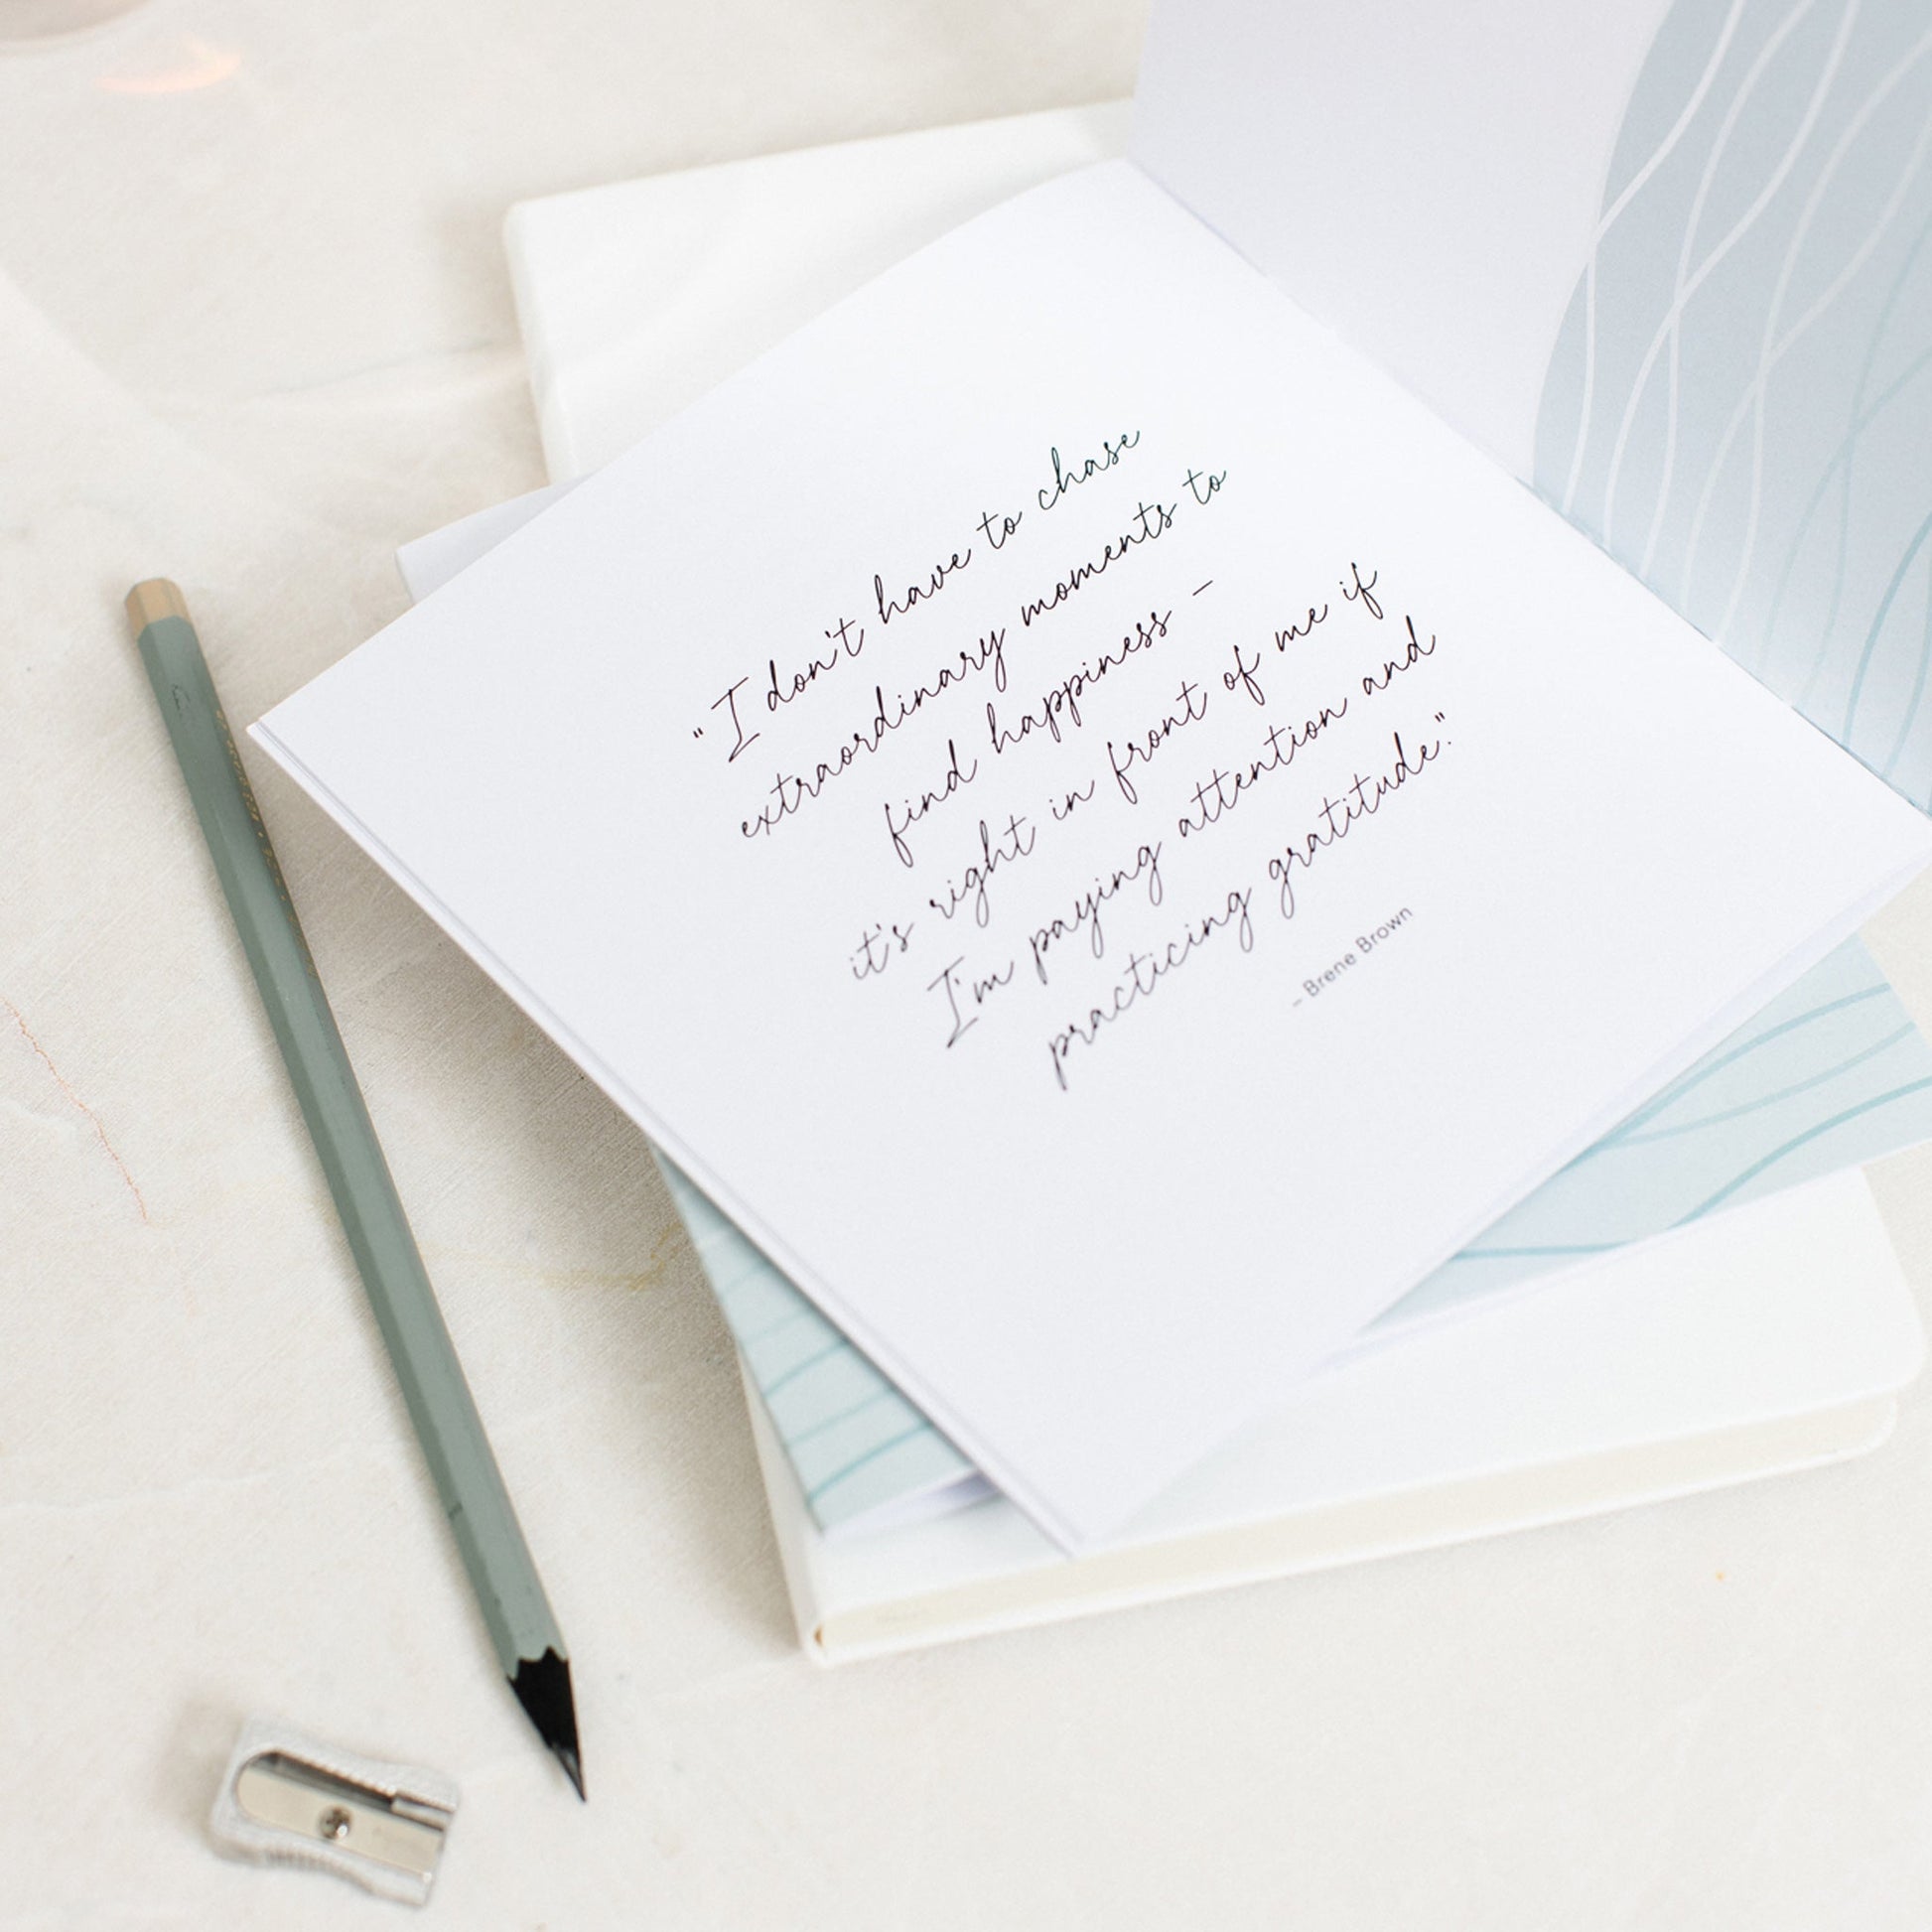 "I don't have to chase
extraordinary moments to
find happiness –
it's right in front of me if
I'm paying attention and
practicing gratitude."
– Brene Brown